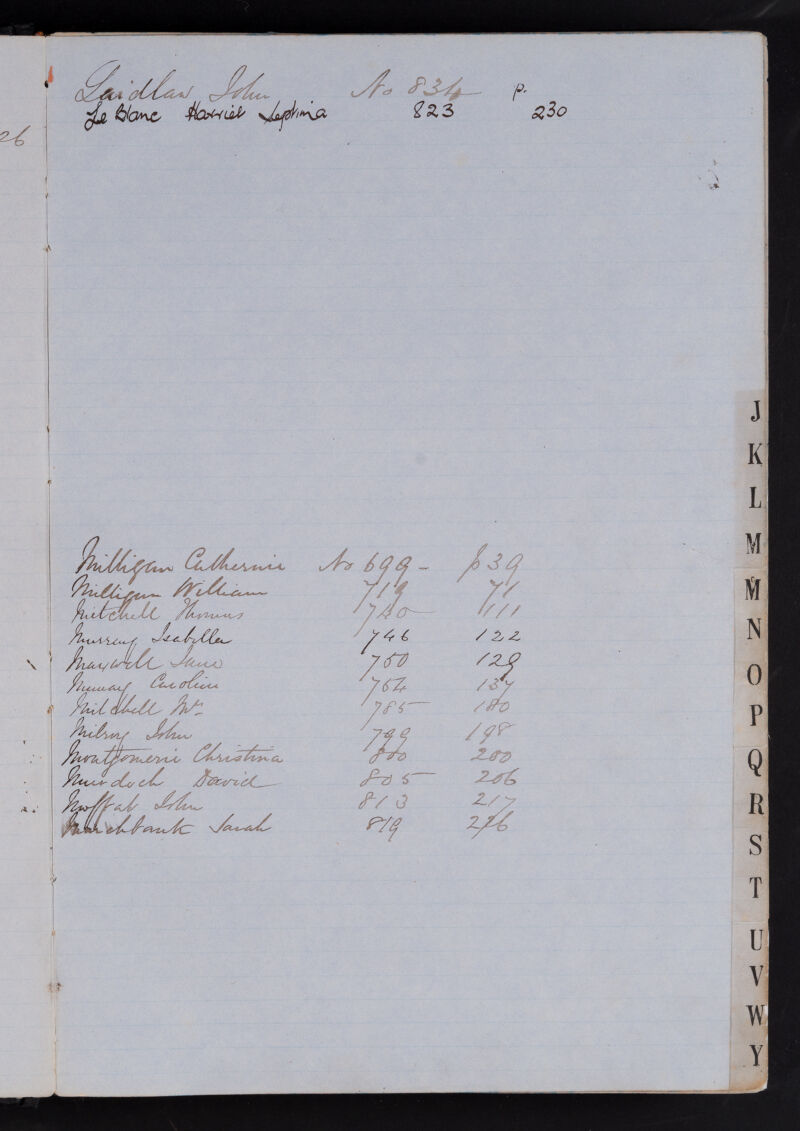 26
Laidlaw John No 834 p.
Le Blanc Harriet Septima 823 230
Milligan Catherine No 699 - p 39
Milligan William 719 71
Mitchell Thomas 740 111
Murray Isabella 746 122
Maxwell Jane 750 129
Murray Caroline 754 137
Mitchell Mrs 785 180
Milroy John 799 198
Montgomerie Christina 800 200
Murdoch David 805 206
Moffat John 813 217
Marchbank Sarah 819 226
J
K
L
M
M
N
O
P
Q
R
S
T
U
V
W
Y